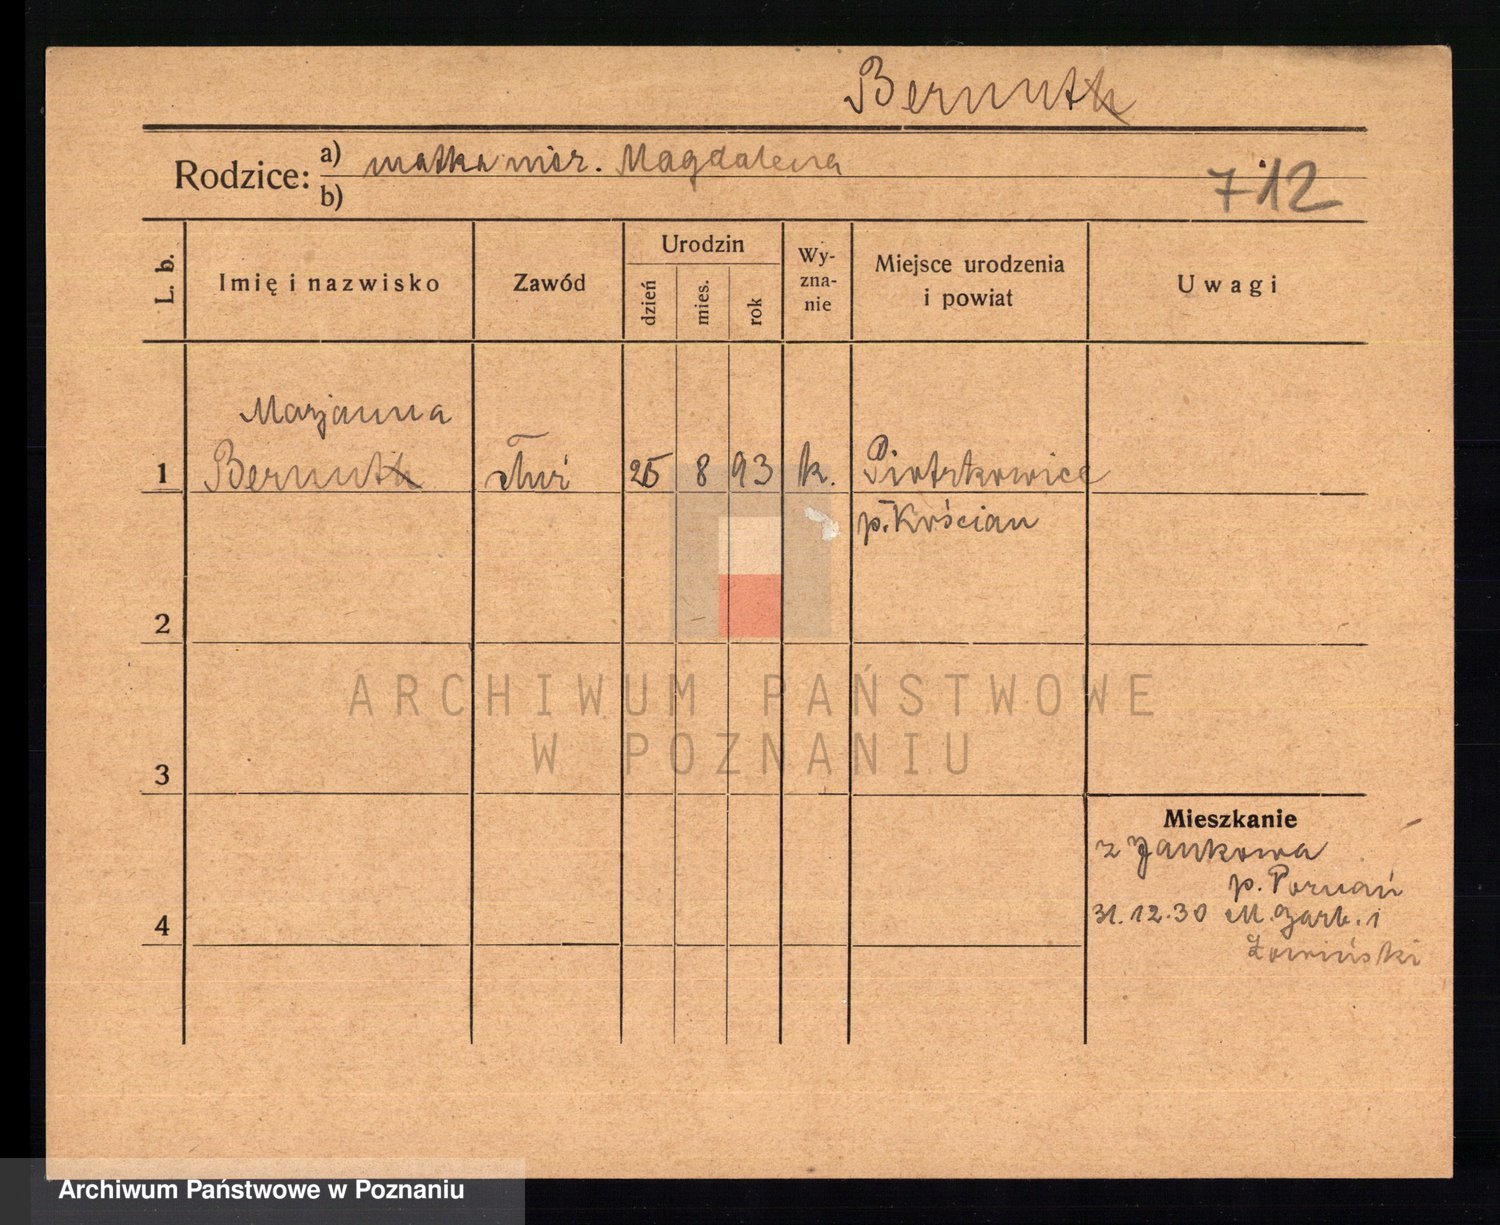 Bernuth
Rodzice: a) matka nier. Magdalena
b)
712
L. b.
Imię i nazwisko
Zawód
Urodzin
dzień
mies.
rok
Wy-
zna-
nie
Miejsce urodzenia
i powiat
Uwagi
Marjanna
1 Bernuth 25 8 93 k. Piotrkowice
p. Kościan
2
ARCHIWUM PAŃSTWOWE
W POZNANIU
3
Mieszkanie
z Jankowa
p. Poznań
4
31.12.30 M. Garb. 1
Łowiński
Archiwum Państwowe w Poznaniu